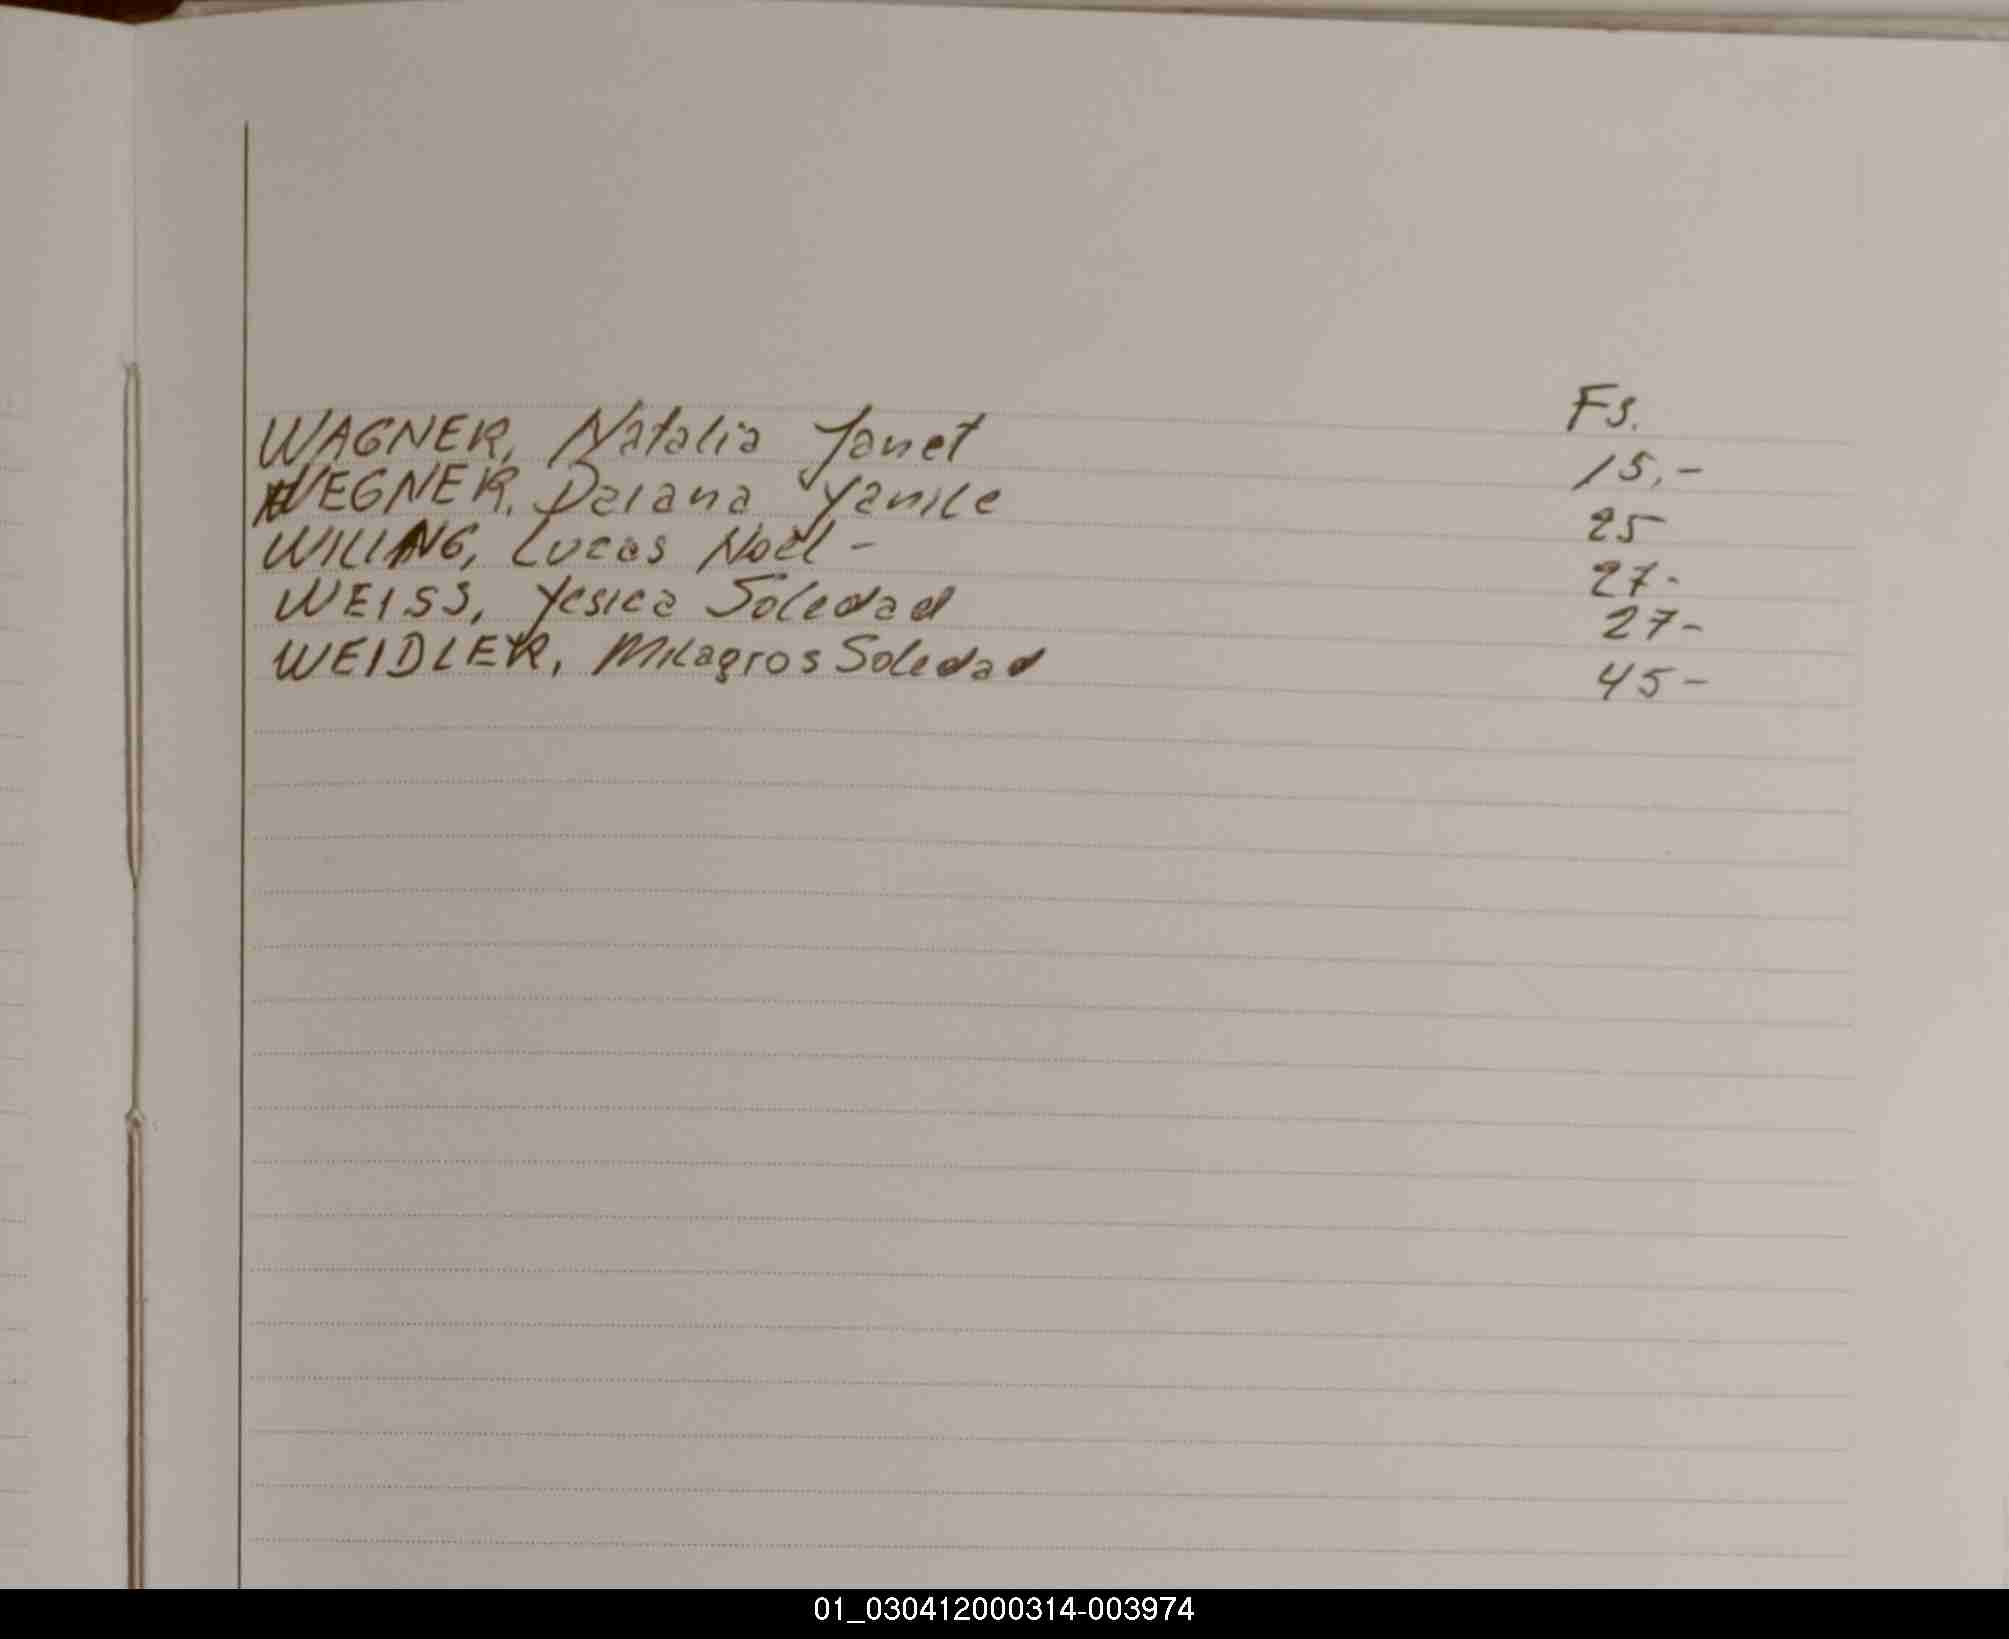 Fs.
WAGNER, Natalia Janet 15,-
WEGNER, Daiana Yanile 25
WILLING, Lucas Noel - 27-
WEISS, Yesica Soledad 27-
WEIDLER, Milagros Soledad 45-
01_030412000314-003974